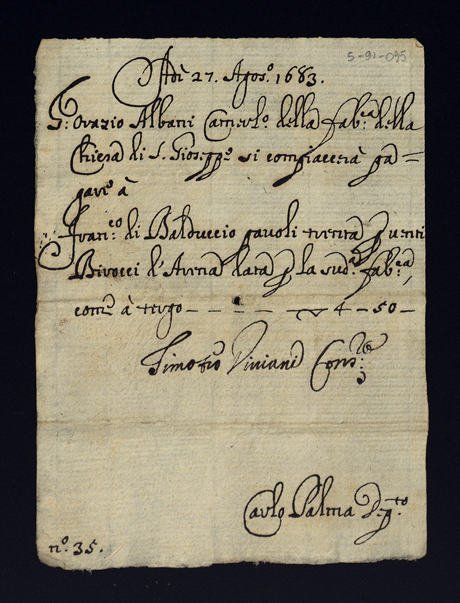 5-91-095
Adì 27. Agos.º 1683.
S.r Orazio Albani Camerl.º della Fab.ca della
Chiesa di S. Gioseppe si compiacerà pa=
gare à
Fran.co di Balduccio pauoli trenta p uenti
Birocci d'Arena data p la sud.a Fab.ca,
come à tergo - - - - - 4 - 50 -
Timoteo Viviani Cons.re
Carlo Palma Dep.to
nº. 35.